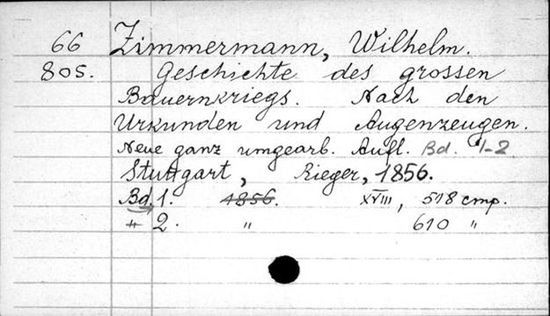 66 Zimmermann, Wilhelm.
805. Geschichte des grossen
Bauernkriegs. Nach den
Urkunden und Augenzeugen.
Neue ganz umgearb. Aufl. Bd. 1-2
Stuttgart, Rieger, 1856.
Bd. 1. 1856. XVIII, 518 cmp.
" 2. " 610 "